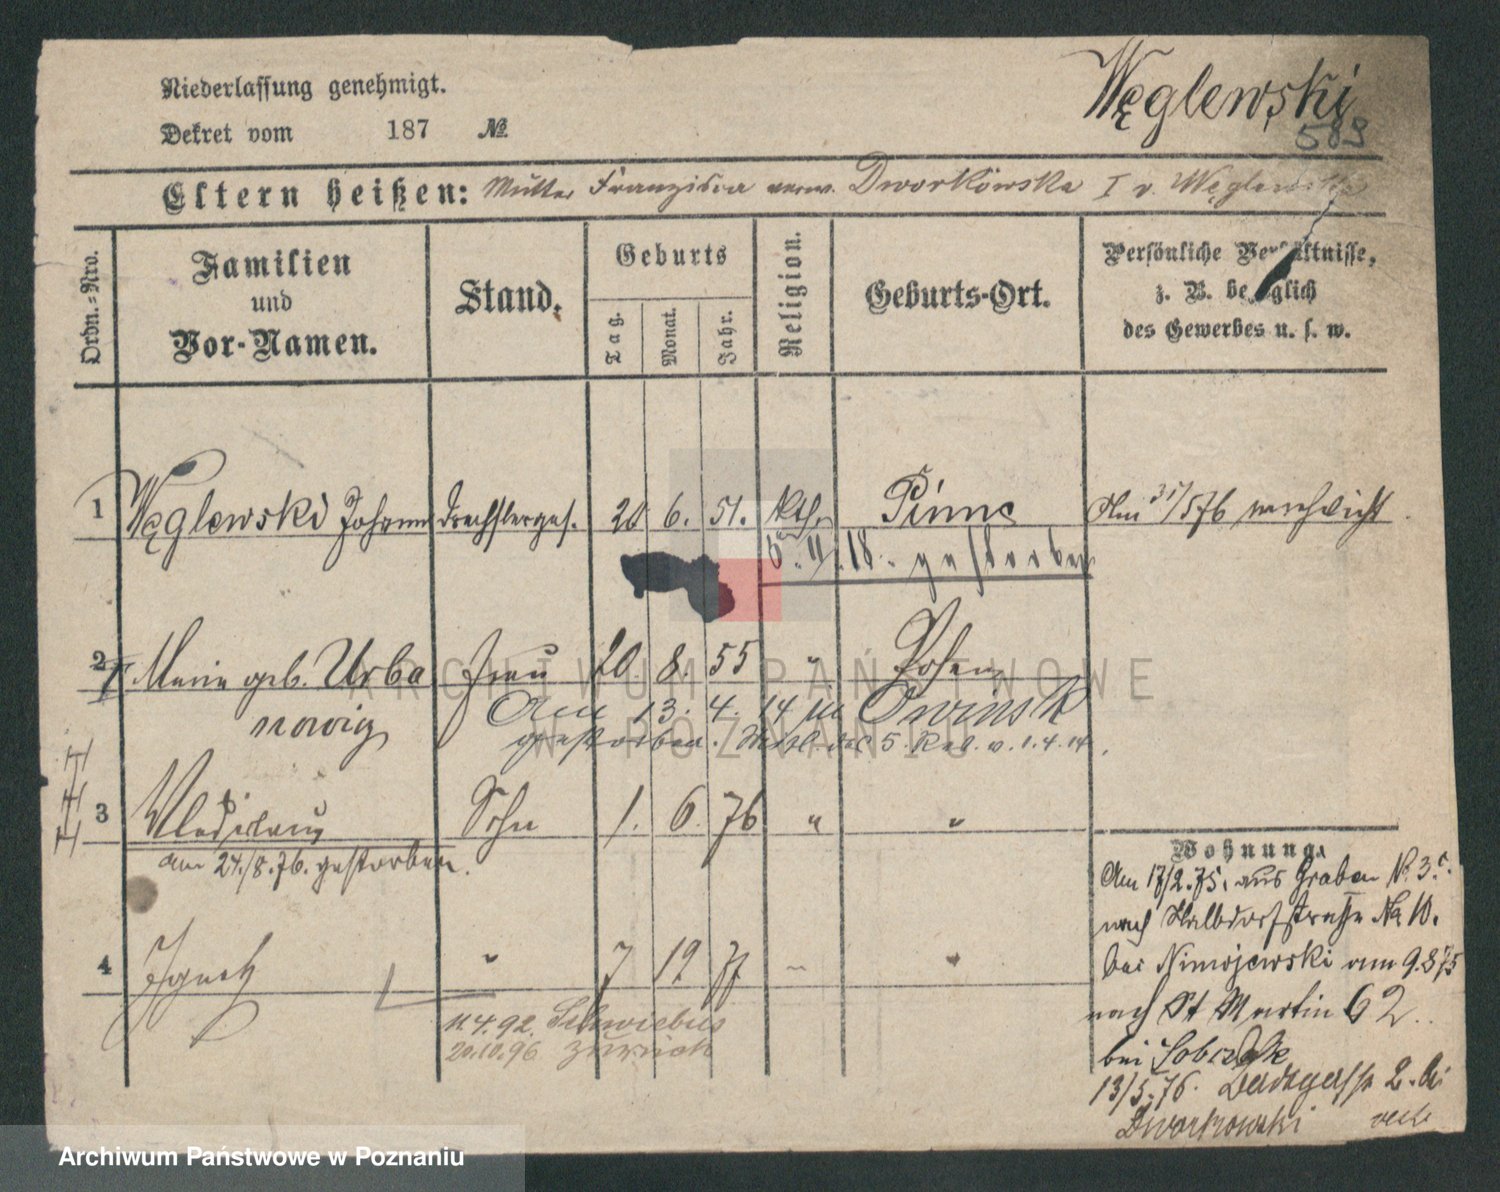 Niederlassung genehmigt.
Dekret vom 187 №
Węglewski
589
Eltern heißen: Mutter Franziska verw. Dworkowska I v. Węglewska
Ordn.-Nro.
Familien und Vor-Namen.
Stand.
Geburts
Tag.
Monat.
Jahr.
Religion.
Geburts-Ort.
Persönliche Verhältnisse,
z. B. bezüglich
des Gewerbes u. s. w.
1 Węglewski Johann Drechslerges. 20 6. 51. kth. Pinne Am 31/5 76
6. II. 18. gestorben
2 Marie geb. Urba Frau 20. 8. 55 " Posen
nowicz Am 13. 4. 14 in Owinsk
gestorben. 5. Rev. v. 1.4.14.
3 Wladislaus Sohn 1. 6. 76 " "
am 24./8.76. gestorben.
4 Ignatz " 7 12 77 " "
11.4.92. Schwiebus
20.10.96 zurück
Wohnung.
Am 17/2.75. aus Graben N. 3c.
nach Halbdorfstraße No 10.
bei Nimojewski am 9.8 75
nach St Martin 62.
bei Sobczak
13/5.76. 2. bei
Dworkowski
ARCHIWUM PAŃSTWOWE
W POZNANIU
Archiwum Państwowe w Poznaniu